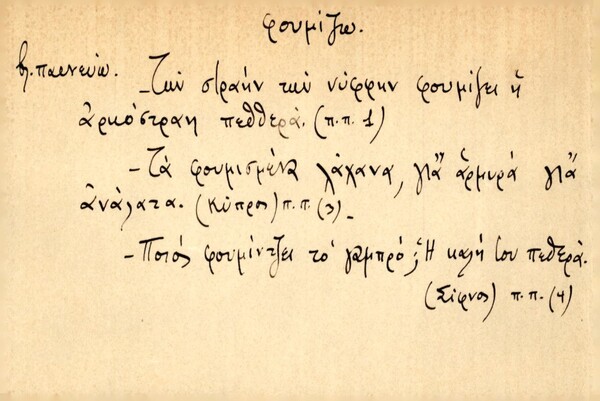 φουμίζω.
βλ. παινεύω. – Τὴν στραὴν τὴν νύφφην φουμίζει ἡ
ἀρκόστραη πεθθερά. (π.π. 1)
– Τὰ φουμισμένα λάχανα, γιὰ ἁρμυρὰ γιὰ
ἀνάλατα. (Κύπρος) π.π. (3) –
– Ποιός φουμίντζει το' γαμπρό; Ἡ καλή του πεθερά.
(Σίφνος) π.π. (4)